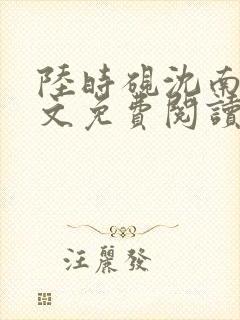 陸時硯沈南
文免費閱讀
汪麗發